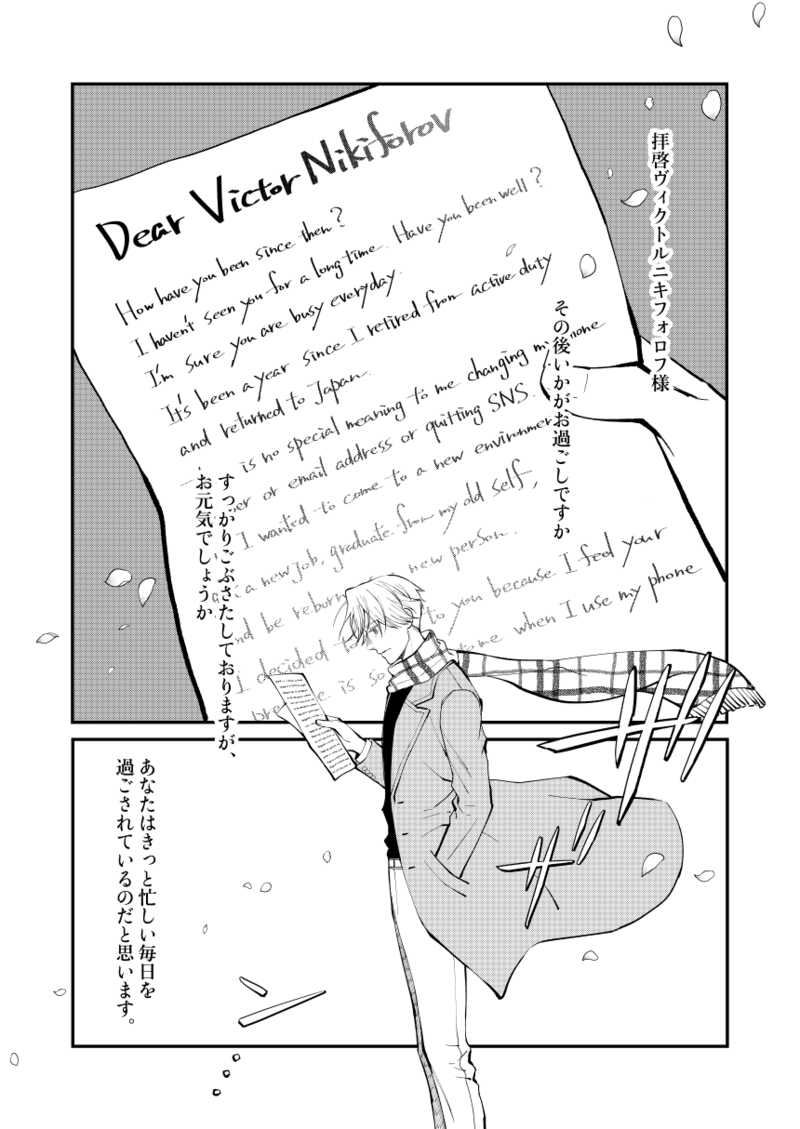 拝啓ヴィクトルニキフォロフ様
その後いかがお過ごしですか
すっかりごぶさたしておりますが、
お元気でしょうか
Dear Victor Nikiforov
How have you been since then?
I haven't seen you for a long time. Have you been well?
I'm sure you are busy everyday.
It's been a year since I retired from active duty
and returned to Japan.
is no special meaning to me changing my
or email address or quitting SNS.
I wanted to come to a new
a new job, graduate from my old self,
and be reborn new person.
I decided to you because I feel your
is so when I use my phone
ザザ
ザ
あなたはきっと忙しい毎日を
過ごされているのだと思います。